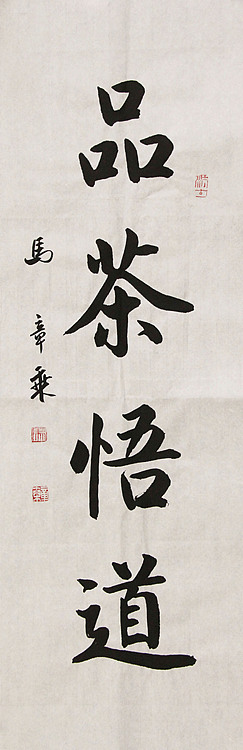 品茶悟道
馬章乗